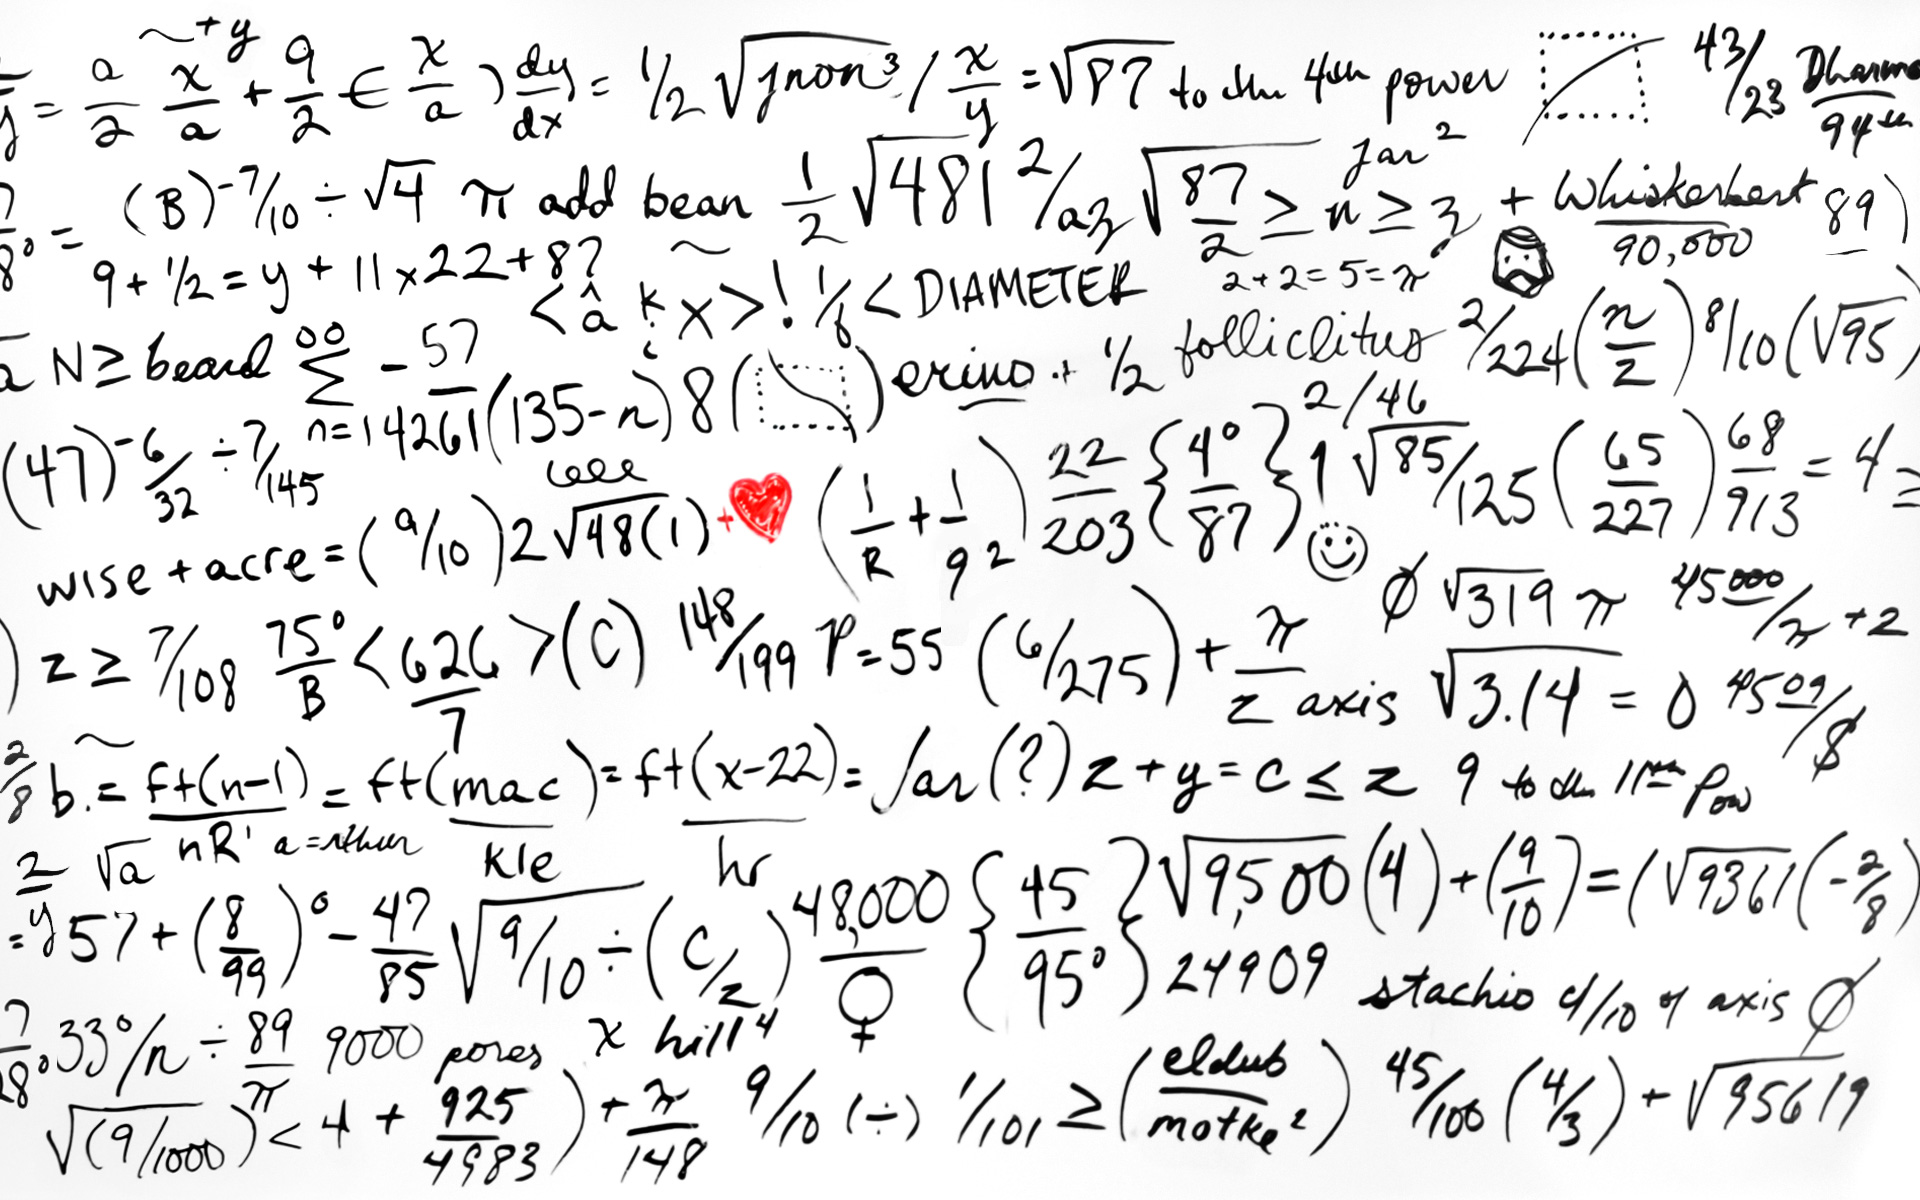 ~ + y
y = a/2 x/a + 9/2 ∈ x/a ) dy/dx = 1/2 √jnon³ / x/y = √87 to the 4th power 43/23 Dharma/94th
7/8° = (B)^-7/10 ÷ √4 π add bean 1/2 √481 2/az √87/2 ≥ n ≥ z jar² + Whiskerbert/90,000 89)
9 + 1/2 = y + 11 x 22 + 8? < â k x > ! 1/6 < DIAMETER 2+2=5=π
a N ≥ beard ∞ Σ n=14261 -57 (135-n) 8 ( ) erino + 1/2 folliclitus 2/224 (n/z) 8/10 (√95
(47)^-6/32 ÷ 7/145 22/203 {4°/87} 2/46 1 √85/125 (65/227) 68/913 = 4 =
wise + acre = (9/10) 2 √48(1) + (1/R + 1/9 2) Ø √319 π 45000/π + 2
) z ≥ 7/108 75°/B < 626/7 > (C) 148/199 P=55 (6/275) + π/z axis √3.14 = 0 4509/$
2/8 b. = ft(n-1)/nR' = ft(mac/kle) = ft(x-22)/hr = far(?) z + y = c ≤ z 9 to the 11th pow
2/y √a a =
= 57 + (8/99)° - 47/85 √9/10 ÷ (C/z) 48,000/♀ {45/95°} √9,500 (4) + (9/10) = (√9361 (-2/8)
24909 stachio 4/10 of axis Ø
7/28° .33°/n ÷ 89/π 9000 pores x hill⁴
√(9/1000) < 4 + 925/4983 ) + π/148 9/10 (÷) 1/101 ≥ (eldub/motke²) 45/100 (4/3) + √95619